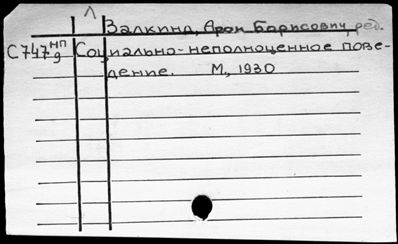 Л
Залкинд, Арон Борисович, ред.
С747 нп/9 Социально-неполноценное пове-
дение. М., 1930